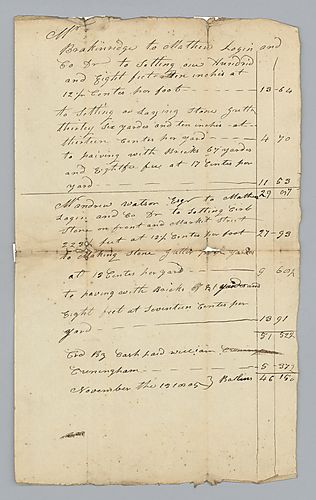 Mr
Brakinridge to Mathew Login and
Co Dr to Setting one Hundrid
and Eight feet ten inches at
12½ Center per foot 13 - 64
to Setting or Laying Stone Gutter
thirty Six yards and ten inches at
thirteen Center per yard 4 70
to paiving with Bricks 67 yards
and Eight feet at 17 Center per
yard 11 53
29 87
Mr andrew Watson Esqr to Mathew
Login and Co Dr to Setting Cirb
Stone on front and Markit Street
223 feet at 12½ Center per foot 27 - 93
to Making Stone Gutter yards
at 13 Center per yard 9
to paving with Bricks 81 yards and
Eight feet at Seventeen Center per
yard 13 91
51
Crd By Cash paid william Cuningham
Cuningham 5 - 37
November the 13 1805 } Ballins 46 15